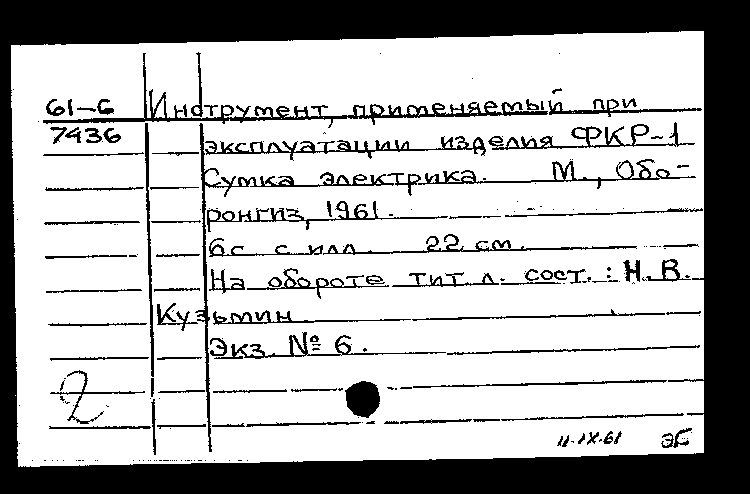 61-6 Инструмент, применяемый при
7436 эксплуатации изделия ФКР-1
Сумка электрика. М., Обо-
ронгиз, 1961.
6с с илл. 22 см.
На обороте тит. л. сост.: Н. В.
Кузьмин.
Экз. № 6.
2
11.IX.61 ЭБ